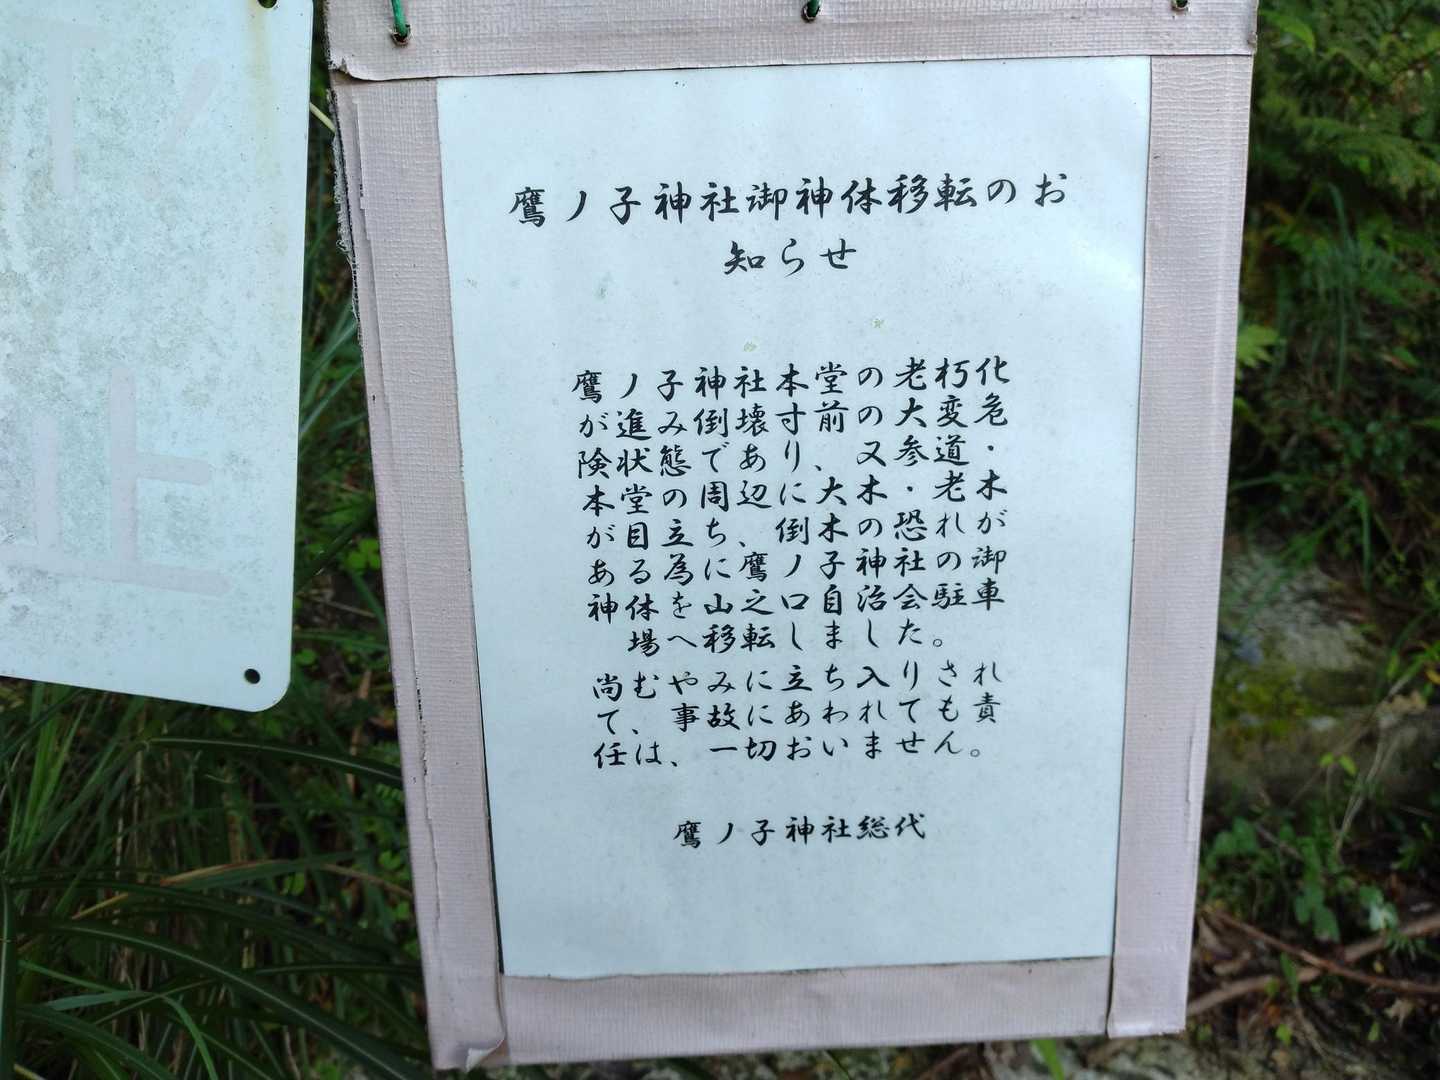 止
鷹ノ子神社御神体移転のお
知らせ
鷹ノ子神社本堂の老朽化
が進み倒壊寸前の大変危
険状態であり、又参道・
本堂の周辺に大木・老木
が目立ち、倒木の恐れが
ある為に鷹ノ子神社の御
神体を山之口自治会駐車
場へ移転しました。
尚むやみに立ち入りされ
て、事故にあわれても責
任は、一切おいません。
鷹ノ子神社総代